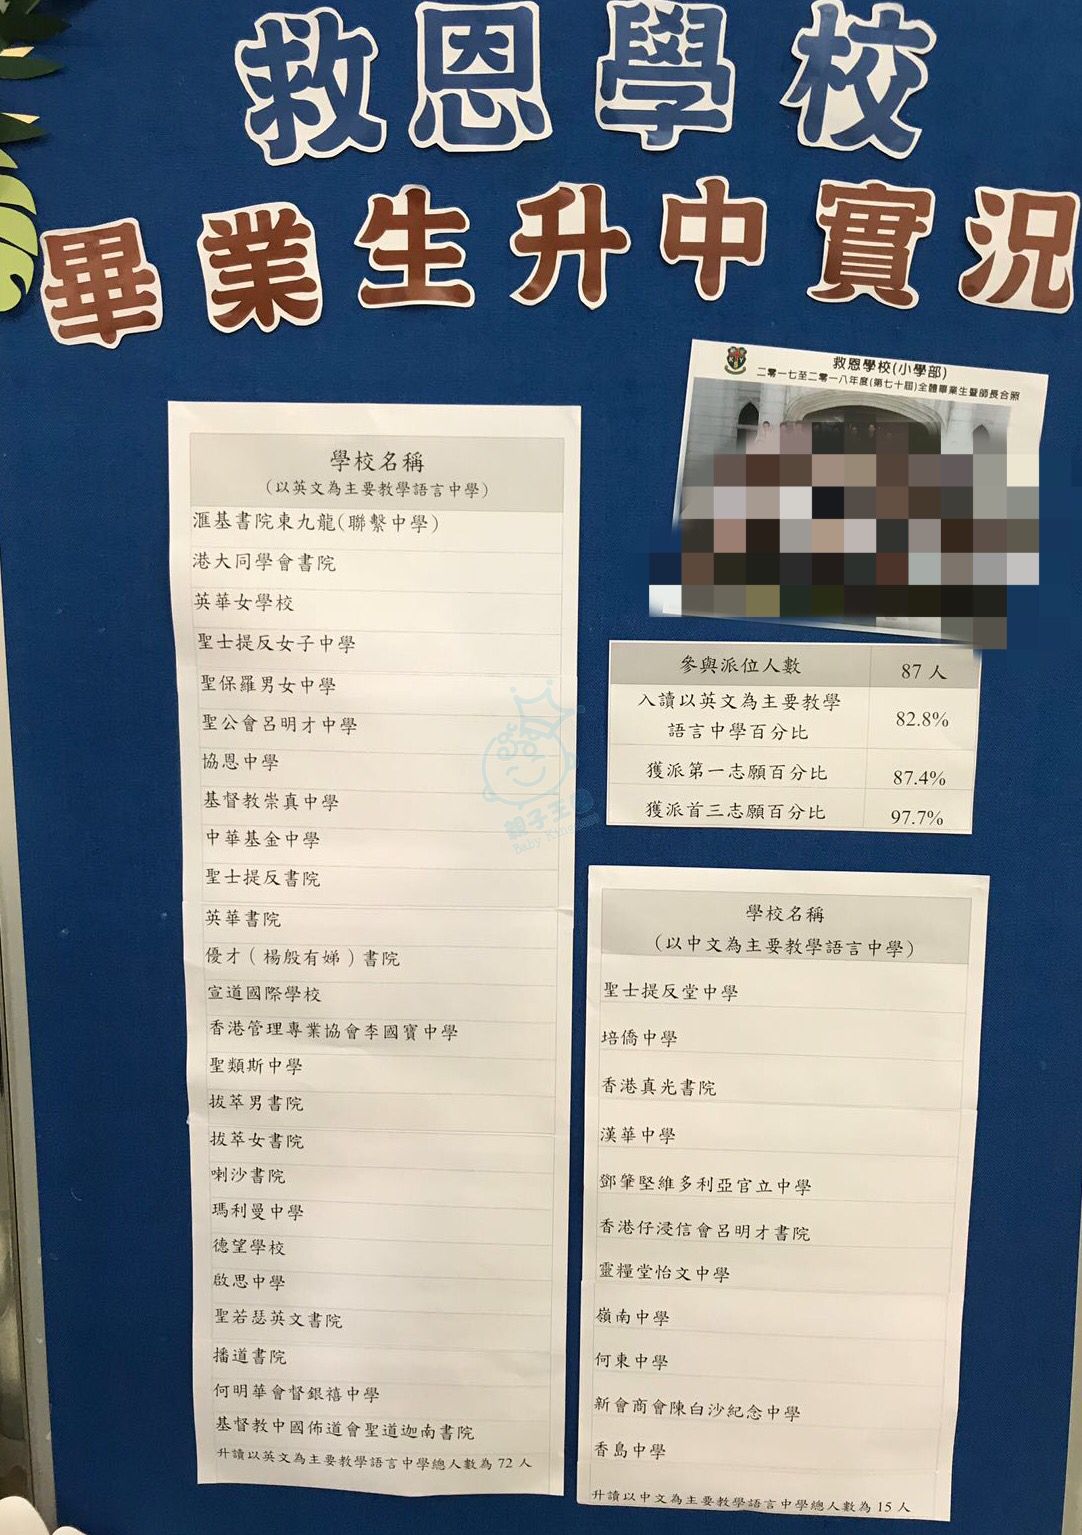 救恩學校
畢業生升中實況
救恩學校(小學部)
二零一七至二零一八年度(第七十屆)全體畢業生暨師長合照
學校名稱
(以英文為主要教學語言中學)
滙基書院東九龍(聯繫中學)
港大同學會書院
英華女學校
聖士提反女子中學
聖保羅男女中學
聖公會呂明才中學
協恩中學
基督教崇真中學
中華基金中學
聖士提反書院
英華書院
優才(楊殷有娣)書院
宣道國際學校
香港管理專業協會李國寶中學
聖類斯中學
拔萃男書院
拔萃女書院
喇沙書院
瑪利曼中學
德望學校
啟思中學
聖若瑟英文書院
播道書院
何明華會督銀禧中學
基督教中國佈道會聖道迦南書院
升讀以英文為主要教學語言中學總人數為 72 人
參與派位人數 87 人
入讀以英文為主要教學
語言中學百分比 82.8%
獲派第一志願百分比 87.4%
獲派首三志願百分比 97.7%
學校名稱
(以中文為主要教學語言中學)
聖士提反堂中學
培僑中學
香港真光書院
漢華中學
鄧肇堅維多利亞官立中學
香港仔浸信會呂明才書院
靈糧堂怡文中學
嶺南中學
何東中學
新會商會陳白沙紀念中學
香島中學
升讀以中文為主要教學語言中學總人數為 15 人
親子王國
Baby Kingdom